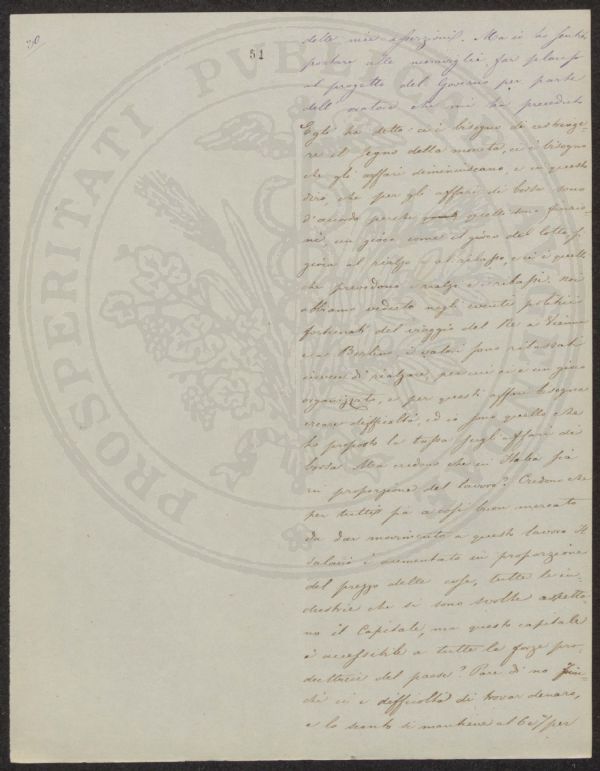 51
delle mie asserzioni. Ma io ho sentito
portare alle meraviglie, far plauso
al progetto del Governo per parte
dell'oratore che mi ha preceduto
Egli ha detto: ci è bisogno di restringe-
re il segno della moneta, ci è bisogno
che gli affari diminuiscano, e in questo
dirò, che per gli affari di borsa sono
d'accordo perchè quelle sono funzio-
ni, un gioco come il gioco del lotto, si
gioca al rialzo e al ribasso, e ci è quelli
che prevedono i rialzi e i ribassi. Noi
abbiamo veduto negli eventi politici
fortunati del viaggio del Re a Vienna
e a Berlino i valori sono ribassati
invece di rialzare, per cui ci è un gioco
organizzato, e per questi affari bisogna
creare difficoltà, ed io sono quello che
ho proposto la tassa sugli affari di
borsa. Ma credono che in Italia sia
in proporzione del lavoro? Credono che
per tutti sia a così buon mercato
da dar movimento a questo lavoro. Il
salario è aumentato in proporzione
del prezzo delle cose, tutte le in-
dustrie che si sono svolte aspetta-
no il capitale, ma questo capitale
è accessibile a tutte le forze pro-
duttrici del paese? Pare di no
ci è difficoltà di trovar denaro,
e lo sconto si mantiene al 6 e 7 per
PROSPERITATI PVBLICAE